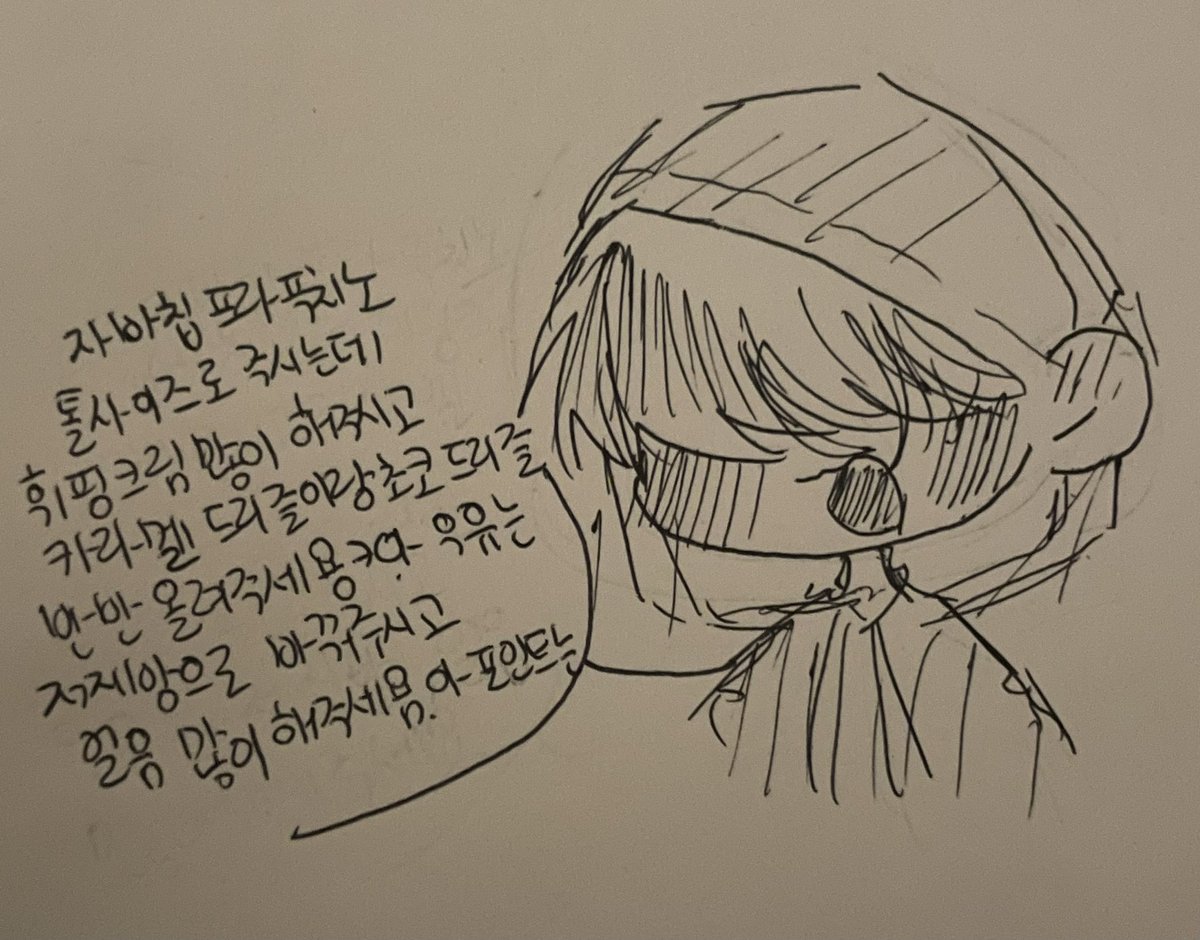 자바칩 프라푹치노
톨사이즈로 주시는데
휘핑크림 많이 해주시고
카라멜 드리즐이랑 초코드리즐
반반 올려주세용 아 우유는
저제앙으로 바꿔주시고
얼음 많이 해주세욤. 아 포인트는